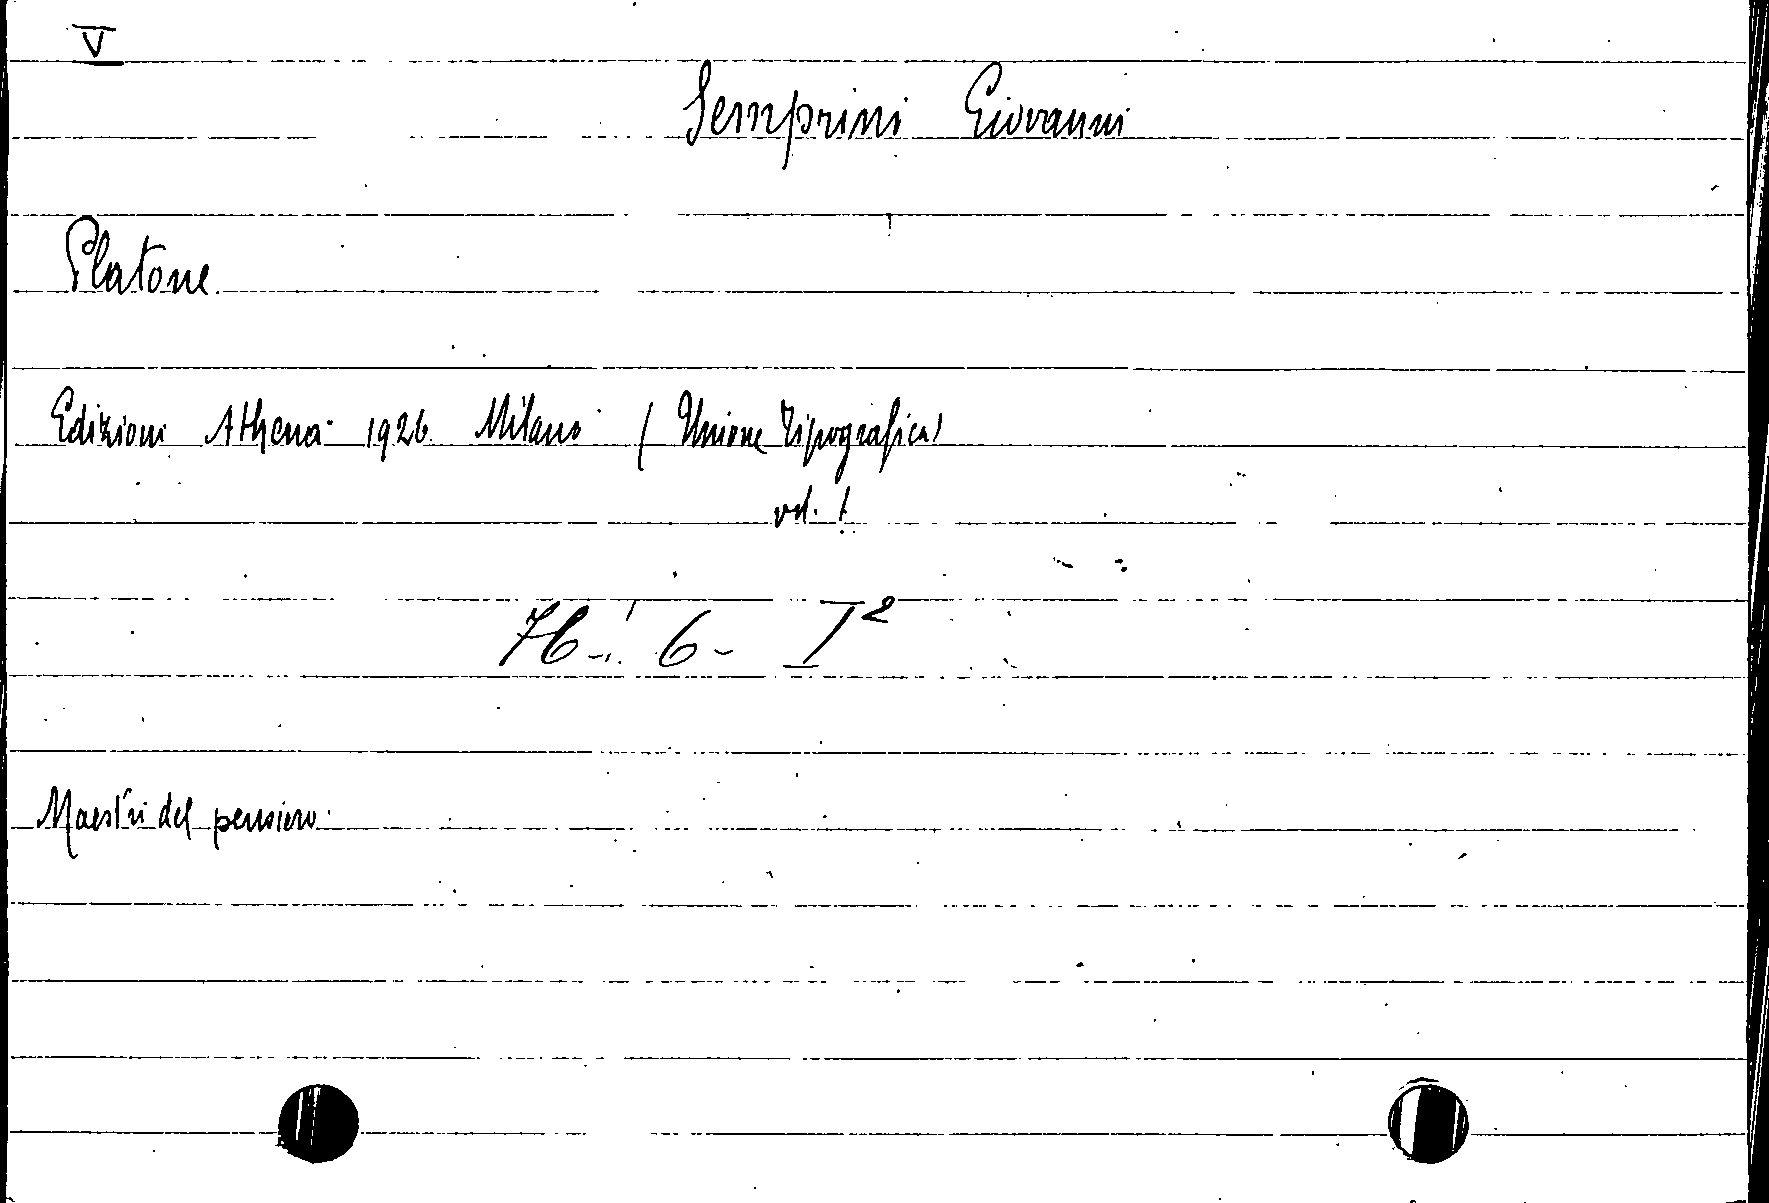 V
Semprini Giovanni
Platone.
Edizioni Athena 1926 Milano (Unione Tipografica)
vol. 1
76 - 6 - I²
Maestri del pensiero.